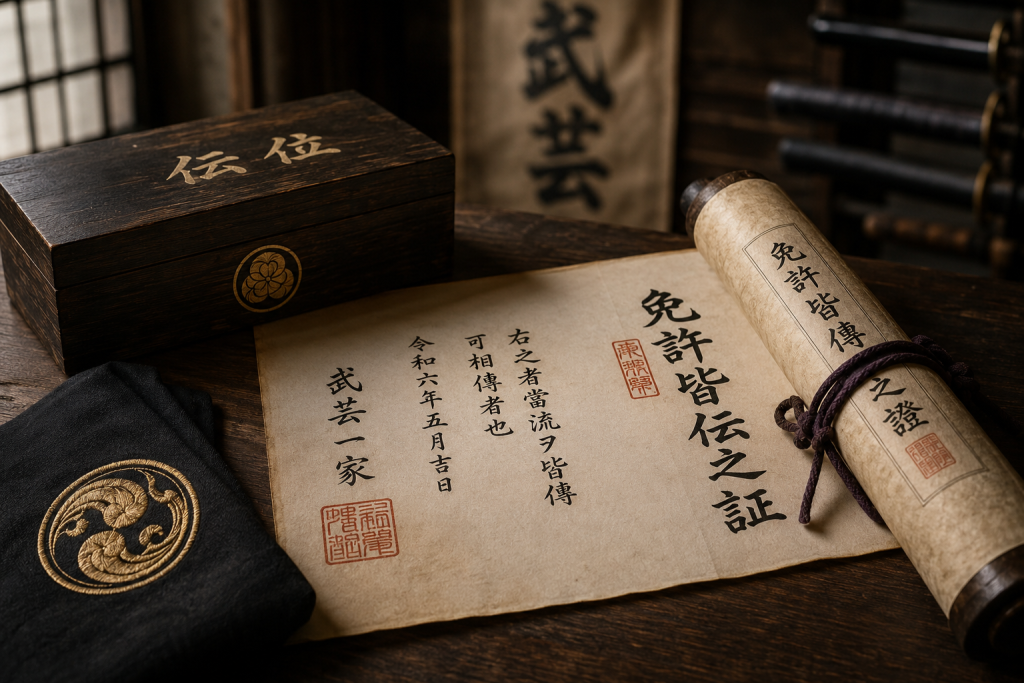 武芸
伝位
免許皆伝之証
右之者當流ヲ皆傳
可相傳者也
令和六年五月吉日
武芸一家
免許皆傳之證